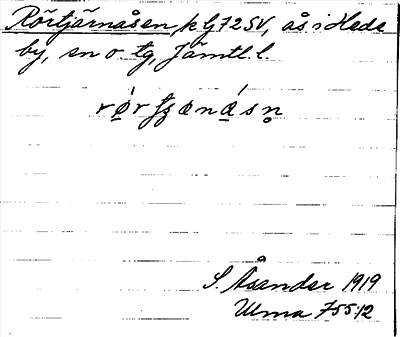 Rörtjärnåsen, k G725V, ås i Hede
by, sn o. tg, Jämtl. l.
S. Åsander 1919
Ulma 755:12